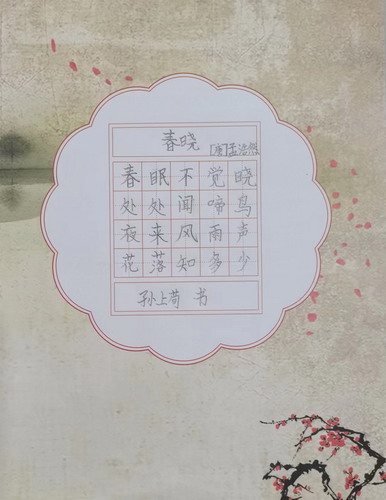 春晓 [唐]孟浩然
春眠不觉晓
处处闻啼鸟
夜来风雨声
花落知多少
孙上苟 书